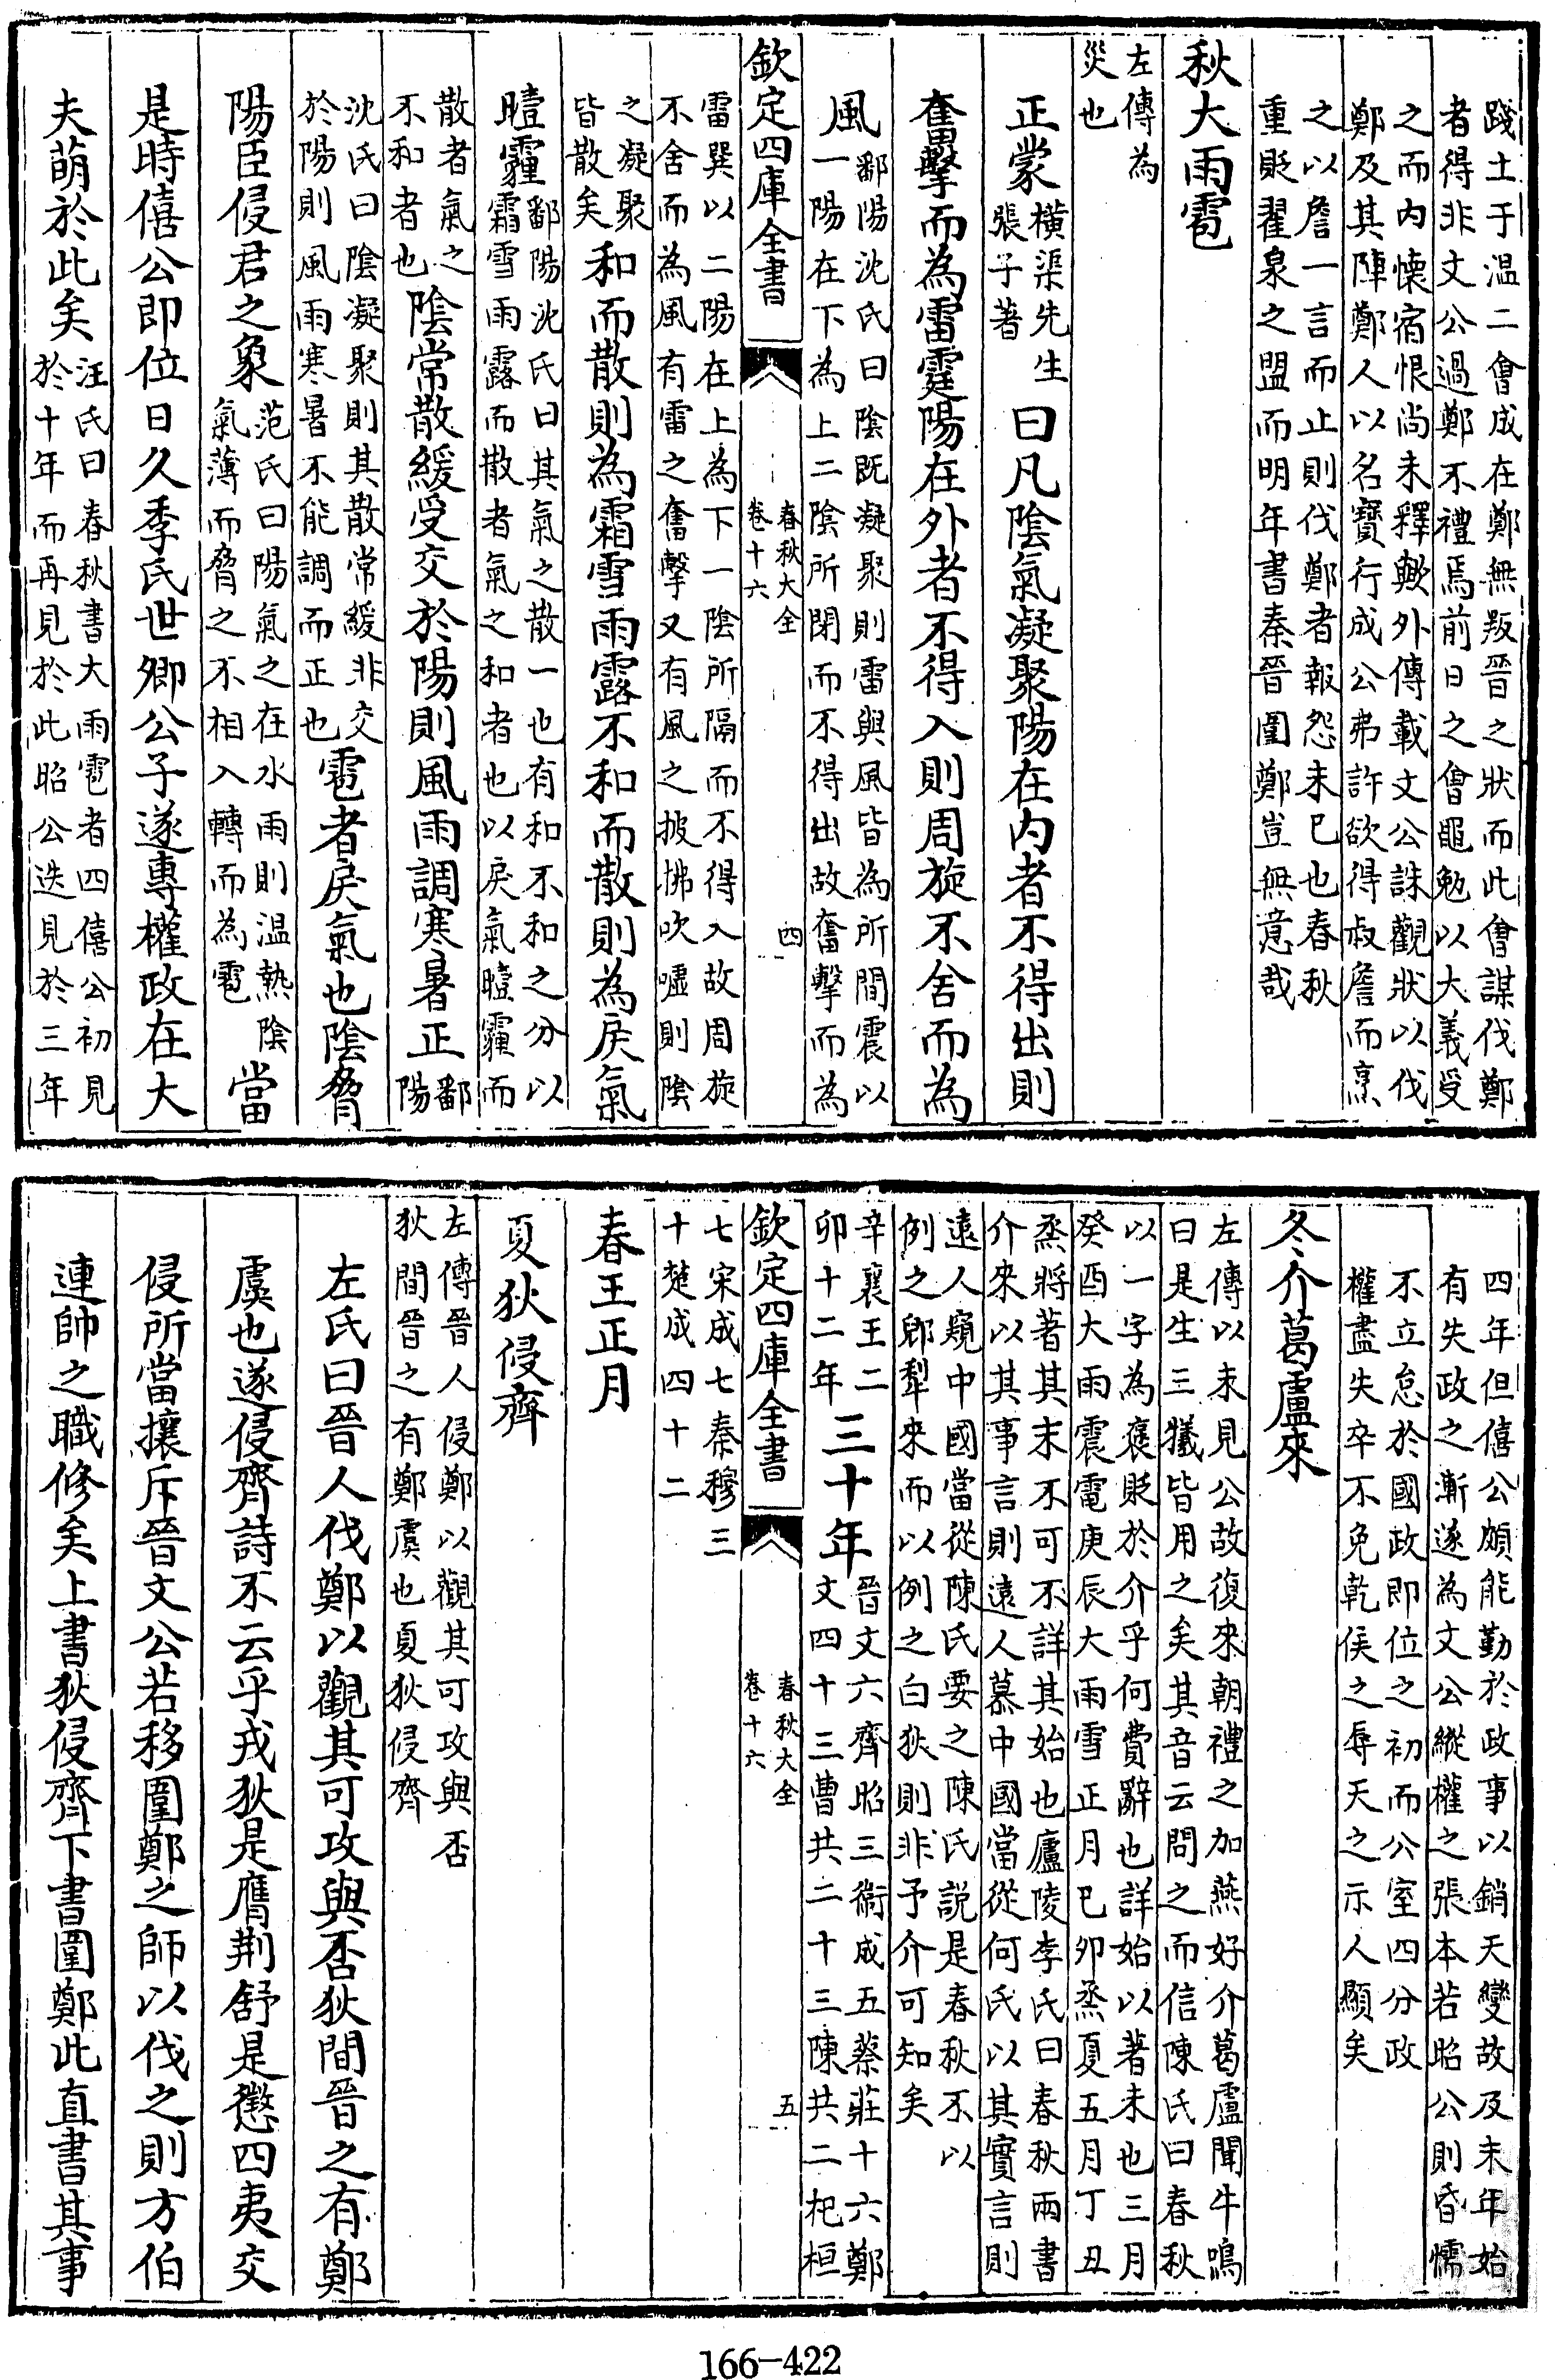 踐土于温二㑹成在鄭無叛晉之狀而此㑹謀伐鄭
者得非文公過鄭不禮焉前日之㑹黽勉以大義受
之而内懐宿恨尚未釋歟外傳載文公誅觀狀以伐
鄭及其陣鄭人以名寳行成公弗許欲得叔詹而烹
之以詹一言而止則伐鄭者報怨未已也春秋
重貶翟泉之盟而明年書秦晉圍鄭豈無意哉
秋大雨雹
左傳為
災也
正蒙橫渠先生
張子著
曰凡隂氣凝聚陽在内者不得出則
奮擊而為雷霆陽在外者不得入則周旋不舍而為
風鄱陽沈氏曰隂既凝聚則雷與風皆為所間震以
一陽在下為上二隂所閉而不得出故奮擊而為
欽定四庫全書
春秋大全
卷十六
四
雷巽以二陽在上為下一隂所隔而不得入故周旋
不舍而為風有雷之奮擊又有風之披拂吹噓則隂
之凝聚
皆散矣
和而散則為霜雪雨露不和而散則為戾氣
曀霾鄱陽沈氏曰其氣之散一也有和不和之分以
霜雪雨露而散者氣之和者也以戾氣曀霾而
散者氣之
不和者也
隂常散緩受交於陽則風雨調寒暑正鄱
陽
沈氏曰隂凝聚則其散常緩非交
於陽則風雨寒暑不能調而正也
雹者戾氣也隂脅
陽臣侵君之象范氏曰陽氣之在水雨則温熱隂
氣薄而脅之不相入轉而為雹
當
是時僖公即位日久季氏世卿公子遂專權政在大
夫萌於此矣汪氏曰春秋書大雨雹者四僖公初見
於十年而再見於此昭公迭見於三年
四年但僖公頗能勤於政事以銷天變故及末年始
有失政之漸遂為文公縱權之張本若昭公則昏懦
不立怠於國政即位之初而公室四分政
權盡失卒不免乾侯之辱天之示人顯矣
冬介葛盧來
左傳以未見公故復來朝禮之加燕好介葛盧聞牛鳴
曰是生三犧皆用之矣其音云問之而信陳氏曰春秋
以一字為褒貶於介乎何費辭也詳始以著末也三月
癸酉大雨震電庚辰大雨雪正月己卯烝夏五月丁丑
烝將著其末不可不詳其始也廬陵李氏曰春秋兩書
介來以其事言則遠人慕中國當從何氏以其實言則
遠人窺中國當從陳氏要之陳氏説是春秋不以
例之郳犁來而以例之白狄則非予介可知矣
辛襄王二
卯十二年
三十年晉文六齊昭三衛成五蔡莊十六鄭
文四十三曹共二十三陳共二杞桓
欽定四庫全書
春秋大全
卷十六
五
七宋成七秦穆三
十楚成四十二
春王正月
夏狄侵齊
左傳晉人侵鄭以觀其可攻與否
狄間晉之有鄭虞也夏狄侵齊
左氏曰晉人伐鄭以觀其可攻與否狄間晉之有鄭
虞也遂侵齊詩不云乎戎狄是膺荆舒是懲四夷交
侵所當攘斥晉文公若移圍鄭之師以伐之則方伯
連帥之職修矣上書狄侵齊下書圍鄭此直書其事
166-422